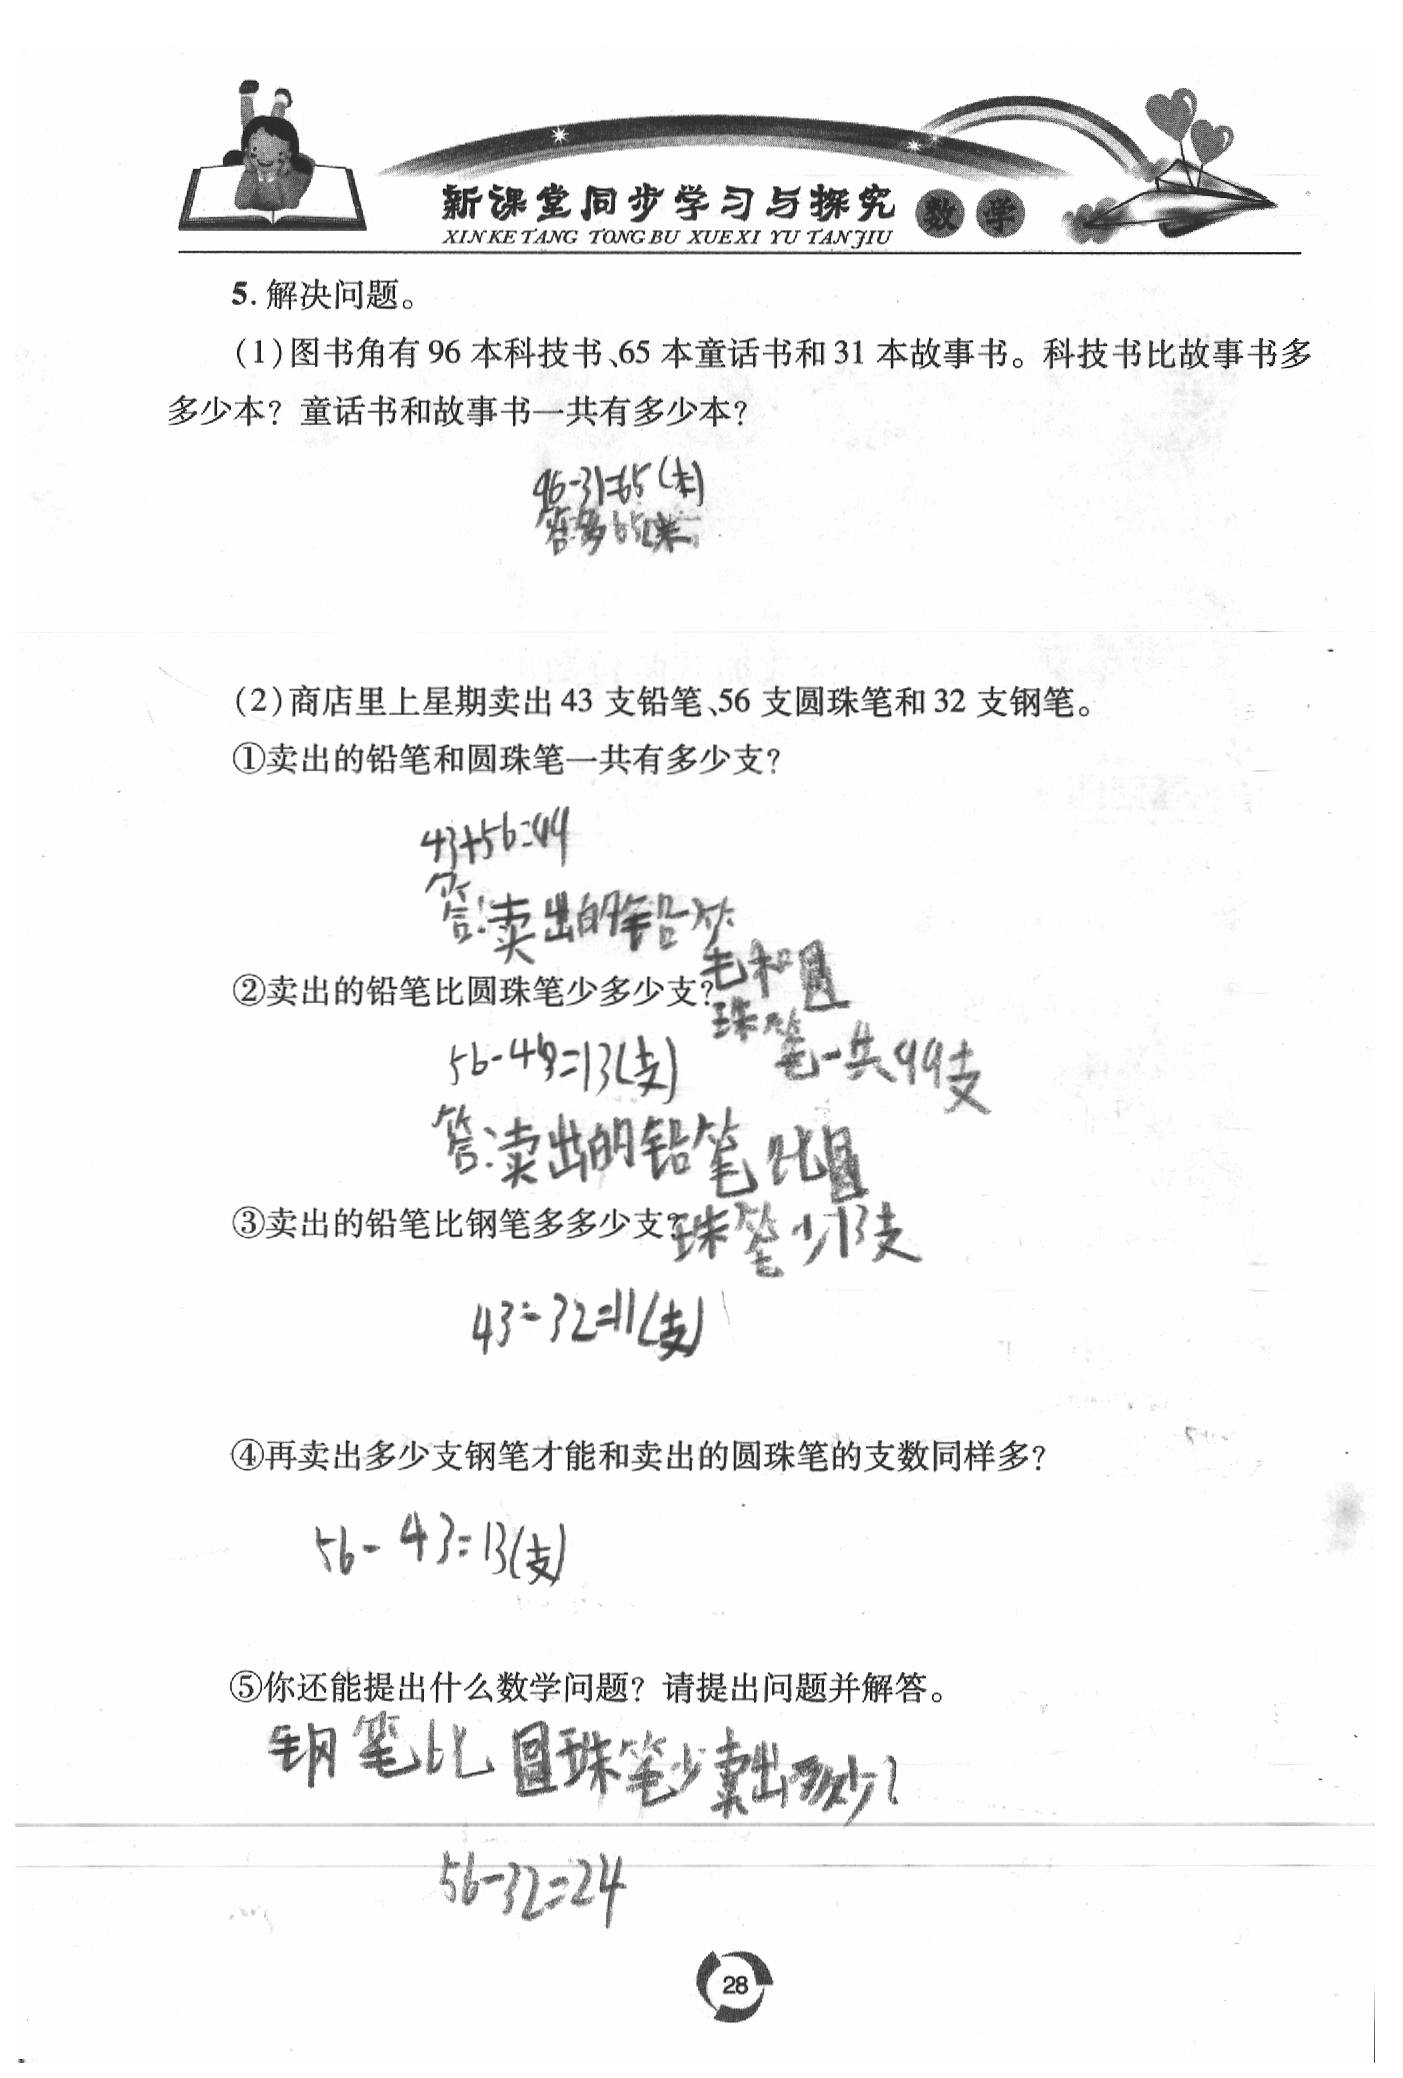 新课堂同步学习与探究 数学
XIN KE TANG TONG BU XUE XI YU TAN JIU
5. 解决问题。
(1)图书角有 96 本科技书、65 本童话书和 31 本故事书。科技书比故事书多
多少本？童话书和故事书一共有多少本？
96-31=65(本)
答:多65本
(2)商店里上星期卖出 43 支铅笔、56 支圆珠笔和 32 支钢笔。
①卖出的铅笔和圆珠笔一共有多少支？
43+56=99
答:卖出的铅笔和圆珠笔一共99支
②卖出的铅笔比圆珠笔少多少支？
56-43=13(支)
答:卖出的铅笔比圆珠笔少13支
③卖出的铅笔比钢笔多多少支？
43-32=11(支)
④再卖出多少支钢笔才能和卖出的圆珠笔的支数同样多？
56-43=13(支)
⑤你还能提出什么数学问题？请提出问题并解答。
钢笔比圆珠笔少卖出多少?
56-32=24
28